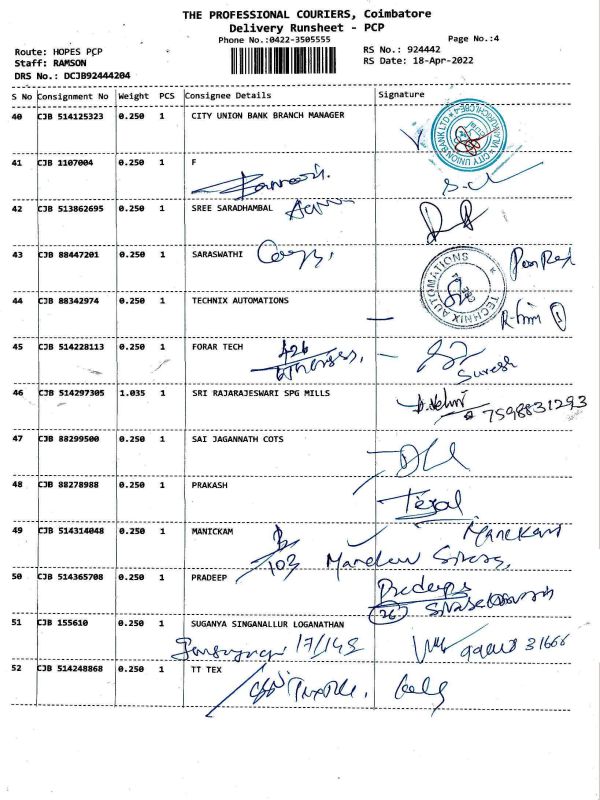 THE PROFESSIONAL COURIERS, Coimbatore
Delivery Runsheet - PCP
Phone No.:0422-3505555
Page No.:4
Route: HOPES PCP
RS No.: 924442
Staff: RAMSON
RS Date: 18-Apr-2022
DRS No.: DCJB92444204
S No Consignment No Weight PCS Consignee Details Signature
40 CJB 514125323 0.250 1 CITY UNION BANK BRANCH MANAGER
CITY UNION BANK LTD
41 CJB 1107004 0.250 1 F
42 CJB 513862695 0.250 1 SREE SARADHAMBAL
43 CJB 88447201 0.250 1 SARASWATHI
TECHNIX AUTOMATIONS
44 CJB 88342974 0.250 1 TECHNIX AUTOMATIONS
45 CJB 514228113 0.250 1 FORAR TECH
Suresh
46 CJB 514297305 1.035 1 SRI RAJARAJESWARI SPG MILLS
7598831293
47 CJB 88299500 0.250 1 SAI JAGANNATH COTS
48 CJB 88278988 0.250 1 PRAKASH
49 CJB 514314048 0.250 1 MANICKAM
103
50 CJB 514365708 0.250 1 PRADEEP
26
51 CJB 155610 0.250 1 SUGANYA SINGANALLUR LOGANATHAN
17/149
52 CJB 514248868 0.250 1 TT TEX